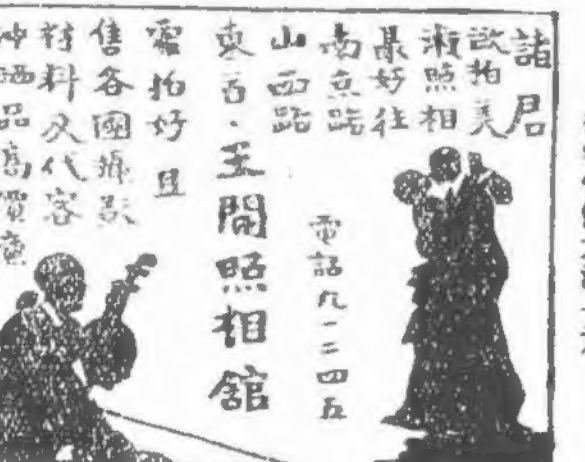 諸君
欲拍美
術照相
最好往
南京路
山西路
東首·王開照相舘
電話九一二四五
拍好且
售各國攝影
材料及代客
冲晒品高價廉